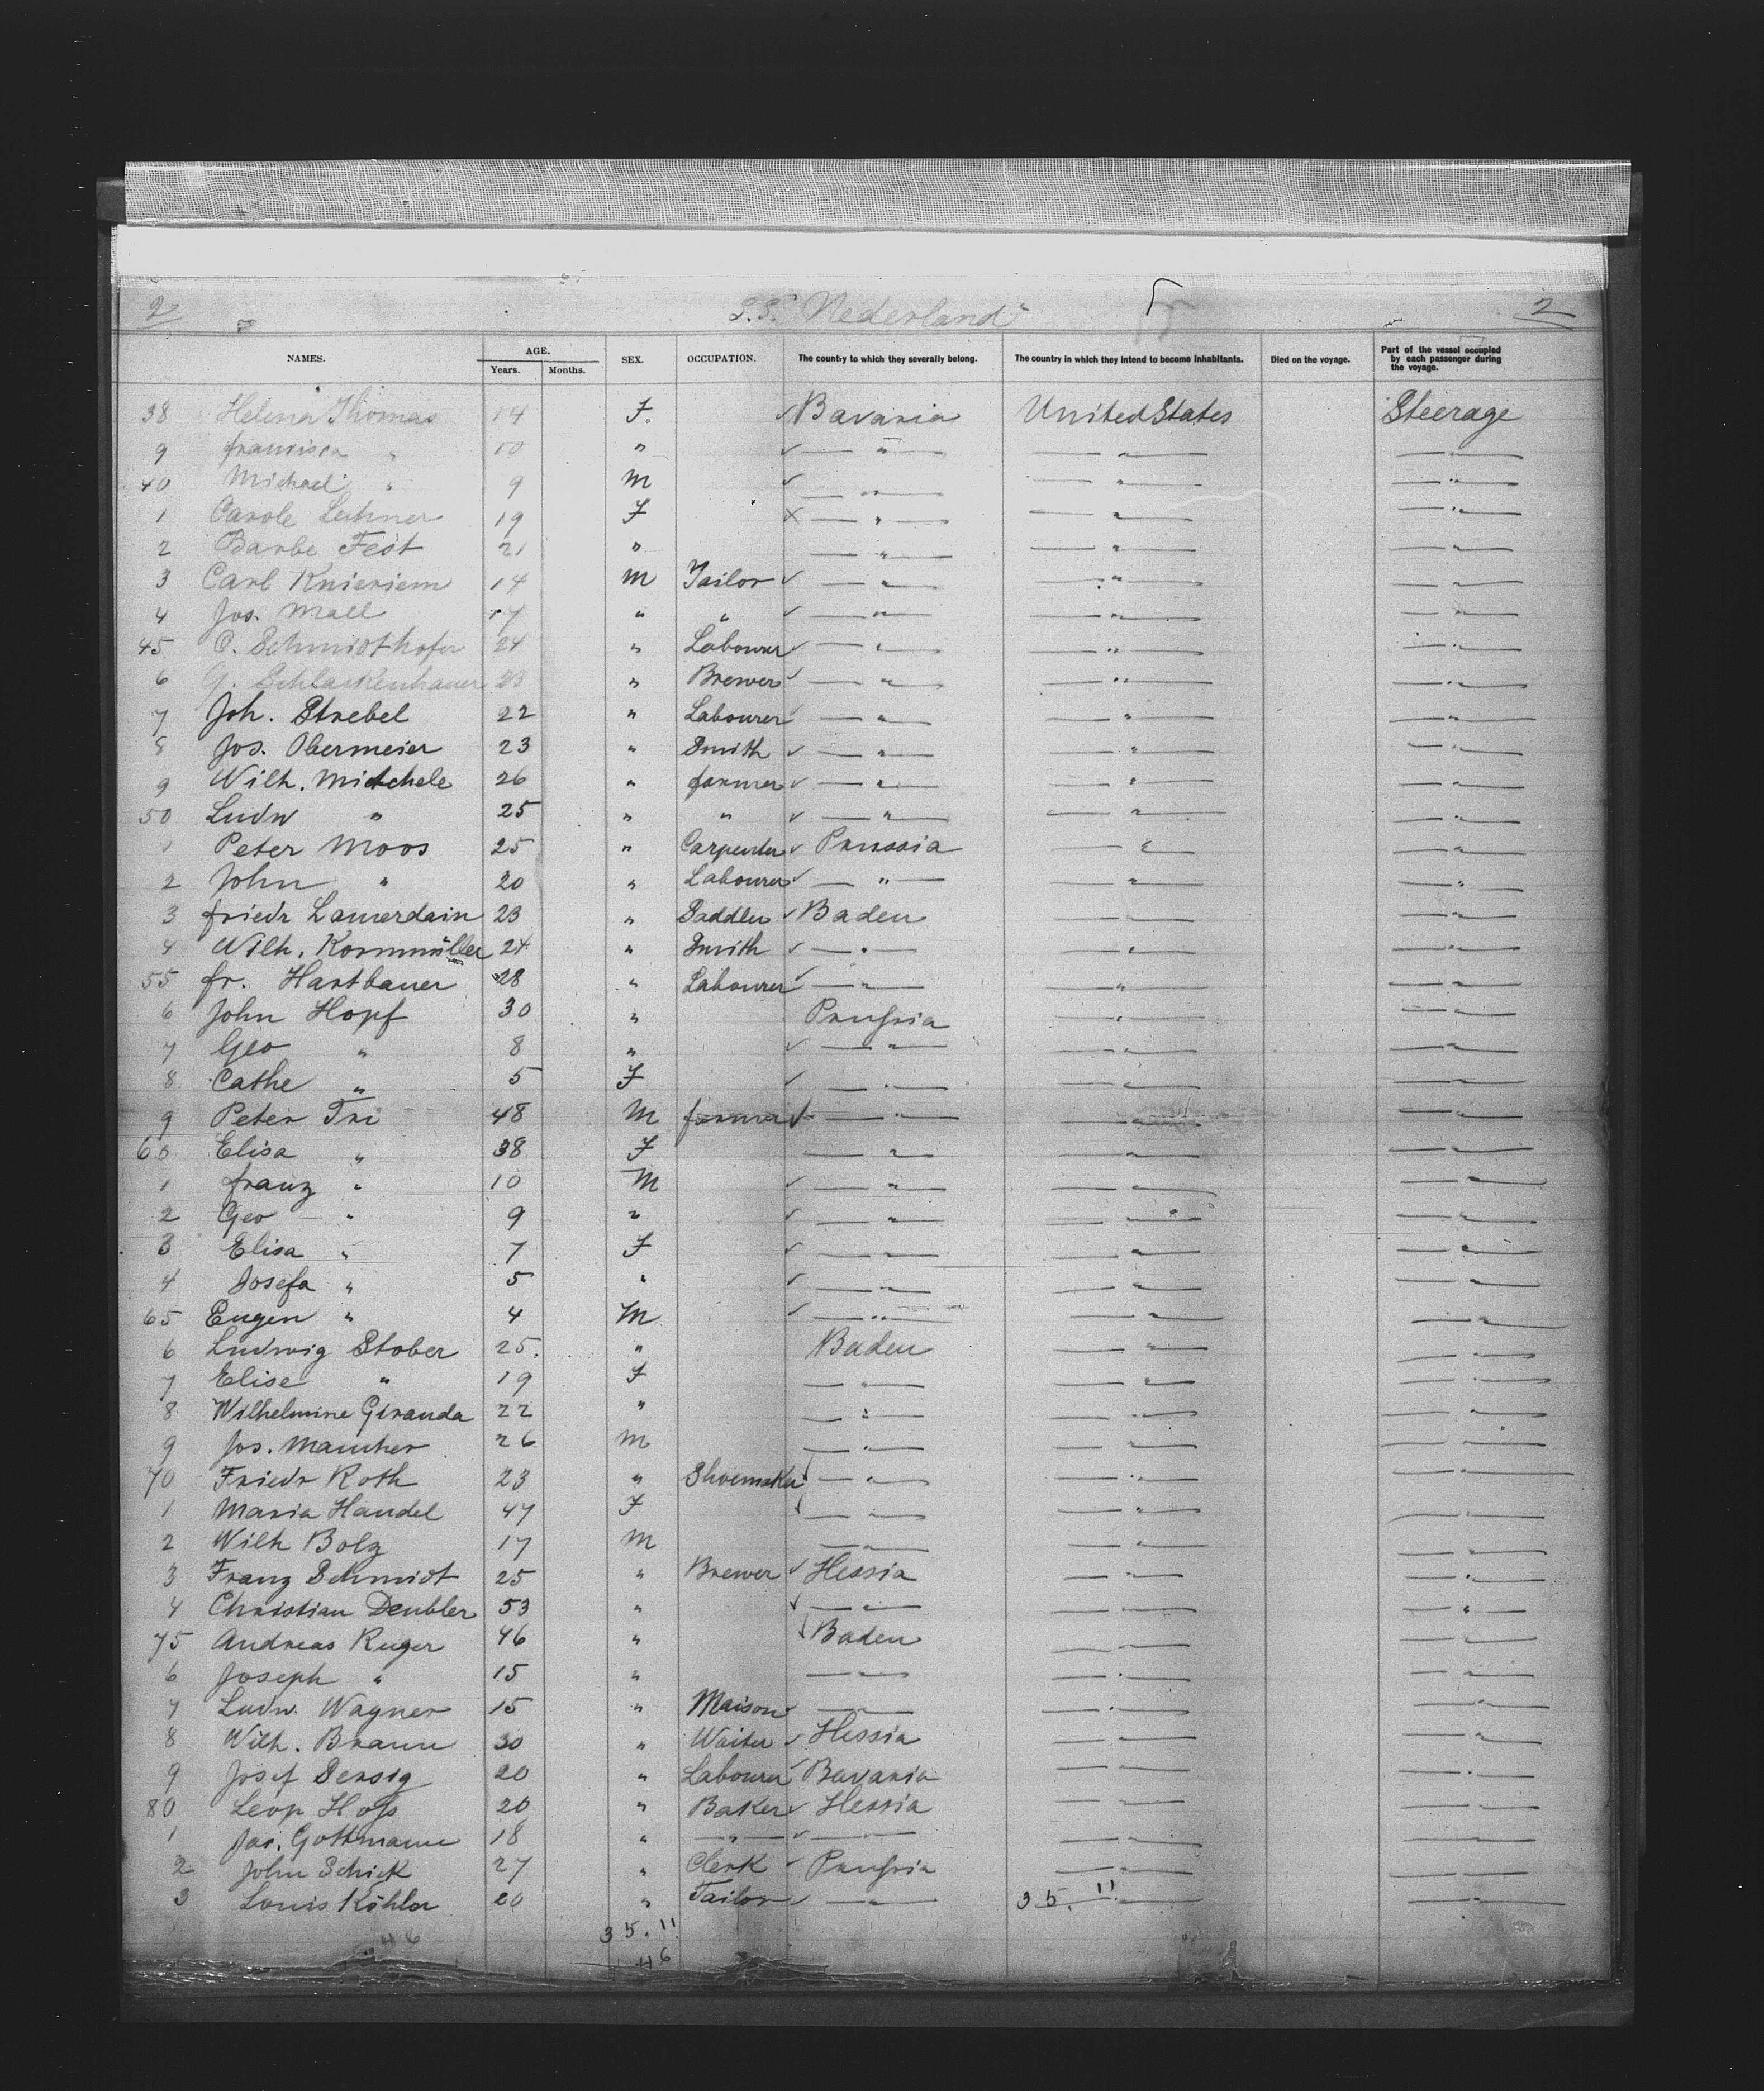 2 S.S. Nederland 2
NAMES. AGE. Years. Months. SEX. OCCUPATION. The country to which they severally belong. The country in which they intend to become inhabitants. Died on the voyage. Part of the vessel occupied by each passenger during the voyage.
38 Helena Thomas 14 F. ✓ Bavaria United States Steerage
9 Francisca " 10 " ✓ — " — — " — — " —
40 Michael " 9 M ✓ — " — — " — — " —
1 Carole Lechner 19 F × — " — — " — — " —
2 Barbe Fest 21 " — " — — " — — " —
3 Carl Knieriem 14 M Tailor ✓ — " — — " — — " —
4 Jos. Mall 17 " " ✓ — " — — " — — " —
45 C. Schmidthofer 24 " Labourer ✓ — " — — " — — " —
6 G. Schlackenhauer 23 " Brewer ✓ — " — — " — — " —
7 Joh. Strebel 22 " Labourer ✓ — " — — " — — " —
8 Jos. Obermeier 23 " Smith ✓ — " — — " — — " —
9 Wilh. Mitchele 26 " farmer ✓ — " — — " — — " —
50 Ludw " 25 " " ✓ — " — — " — — " —
1 Peter Moos 25 " Carpenter ✓ Prussia — " — — " —
2 John " 20 " Labourer ✓ — " — — " — — " —
3 Friedr Lamerdain 23 " Saddler ✓ Baden — " — — " —
4 Wilh. Kornmüller 24 " Smith ✓ — " — — " — — " —
55 Fr. Hartbauer 28 " Labourer ✓ — " — — " — — " —
6 John Hopf 30 " Prussia — " — — " —
7 Geo " 8 " ✓ — " — — " — — " —
8 Cathe " 5 F ✓ — " — — " — — " —
9 Peter Tri 48 M farmer ✓ — " — — " — — " —
60 Elisa " 38 F — " — — " — — " —
1 Franz " 10 M ✓ — " — — " — — " —
2 Geo " 9 " ✓ — " — — " — — " —
3 Elisa " 7 F ✓ — " — — " — — " —
4 Josefa " 5 " ✓ — " — — " — — " —
65 Eugen " 4 M ✓ — " — — " — — " —
6 Ludwig Stober 25. " Baden — " — — " —
7 Elise " 19 F — " — — " — — " —
8 Wilhelmine Giranda 22 " — " — — " — — " —
9 Jos. Mancher 26 M — " — — " — — " —
70 Friedr Roth 23 " Shoemaker ✓ — " — — " — — " —
1 Maria Handel 47 F ✓ — " — — " — — " —
2 Wilh Bolz 17 M — " — — " — — " —
3 Franz Schmidt 25 " Brewer ✓ Hessia — " — — " —
4 Christian Deubler 53 " ✓ — " — — " — — " —
75 Andreas Ruger 46 " ✓ Baden — " — — " —
6 Joseph " 15 " — " — — " — — " —
7 Ludw. Wagner 15 " Maison ✓ — " — — " — — " —
8 Wilh. Braun 30 " Waiter ✓ Hessia — " — — " —
9 Josef Sensig 20 " Labourer ✓ Bavaria — " — — " —
80 Leop Hoss 20 " Baker ✓ Hessia — " — — " —
1 Jac. Gottmann 18 " — " — ✓ — " — — " — — " —
2 John Schick 27 " Clerk ✓ Prussia — " — — " —
3 Louis Köhler 20 " Tailor ✓ — " — 35. 11 — " —
46 35. 11
46